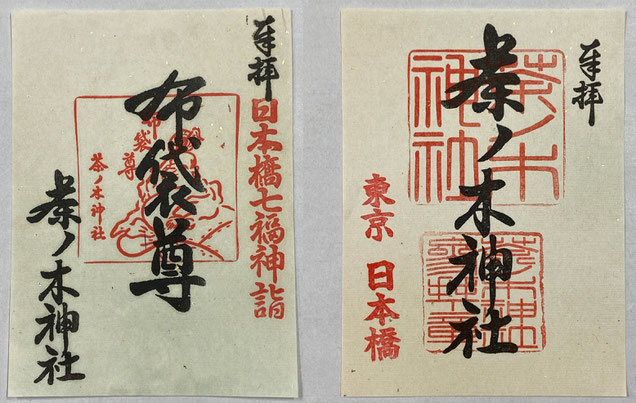 奉拝
日本橋七福神詣
布袋尊
布袋尊
茶ノ木神社
茶ノ木神社
奉拝
茶ノ木神社
茶ノ木
神社
東京 日本橋